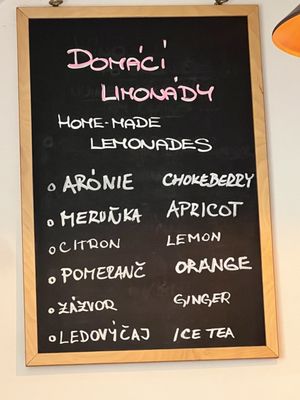 DOMÁCÍ
LIMONÁDY
HOME-MADE
LEMONADES
ARÓNIE CHOKEBERRY
MERUŇKA APRICOT
CITRON LEMON
POMERANČ ORANGE
ZÁZVOR GINGER
LEDOVÝ ČAJ ICE TEA